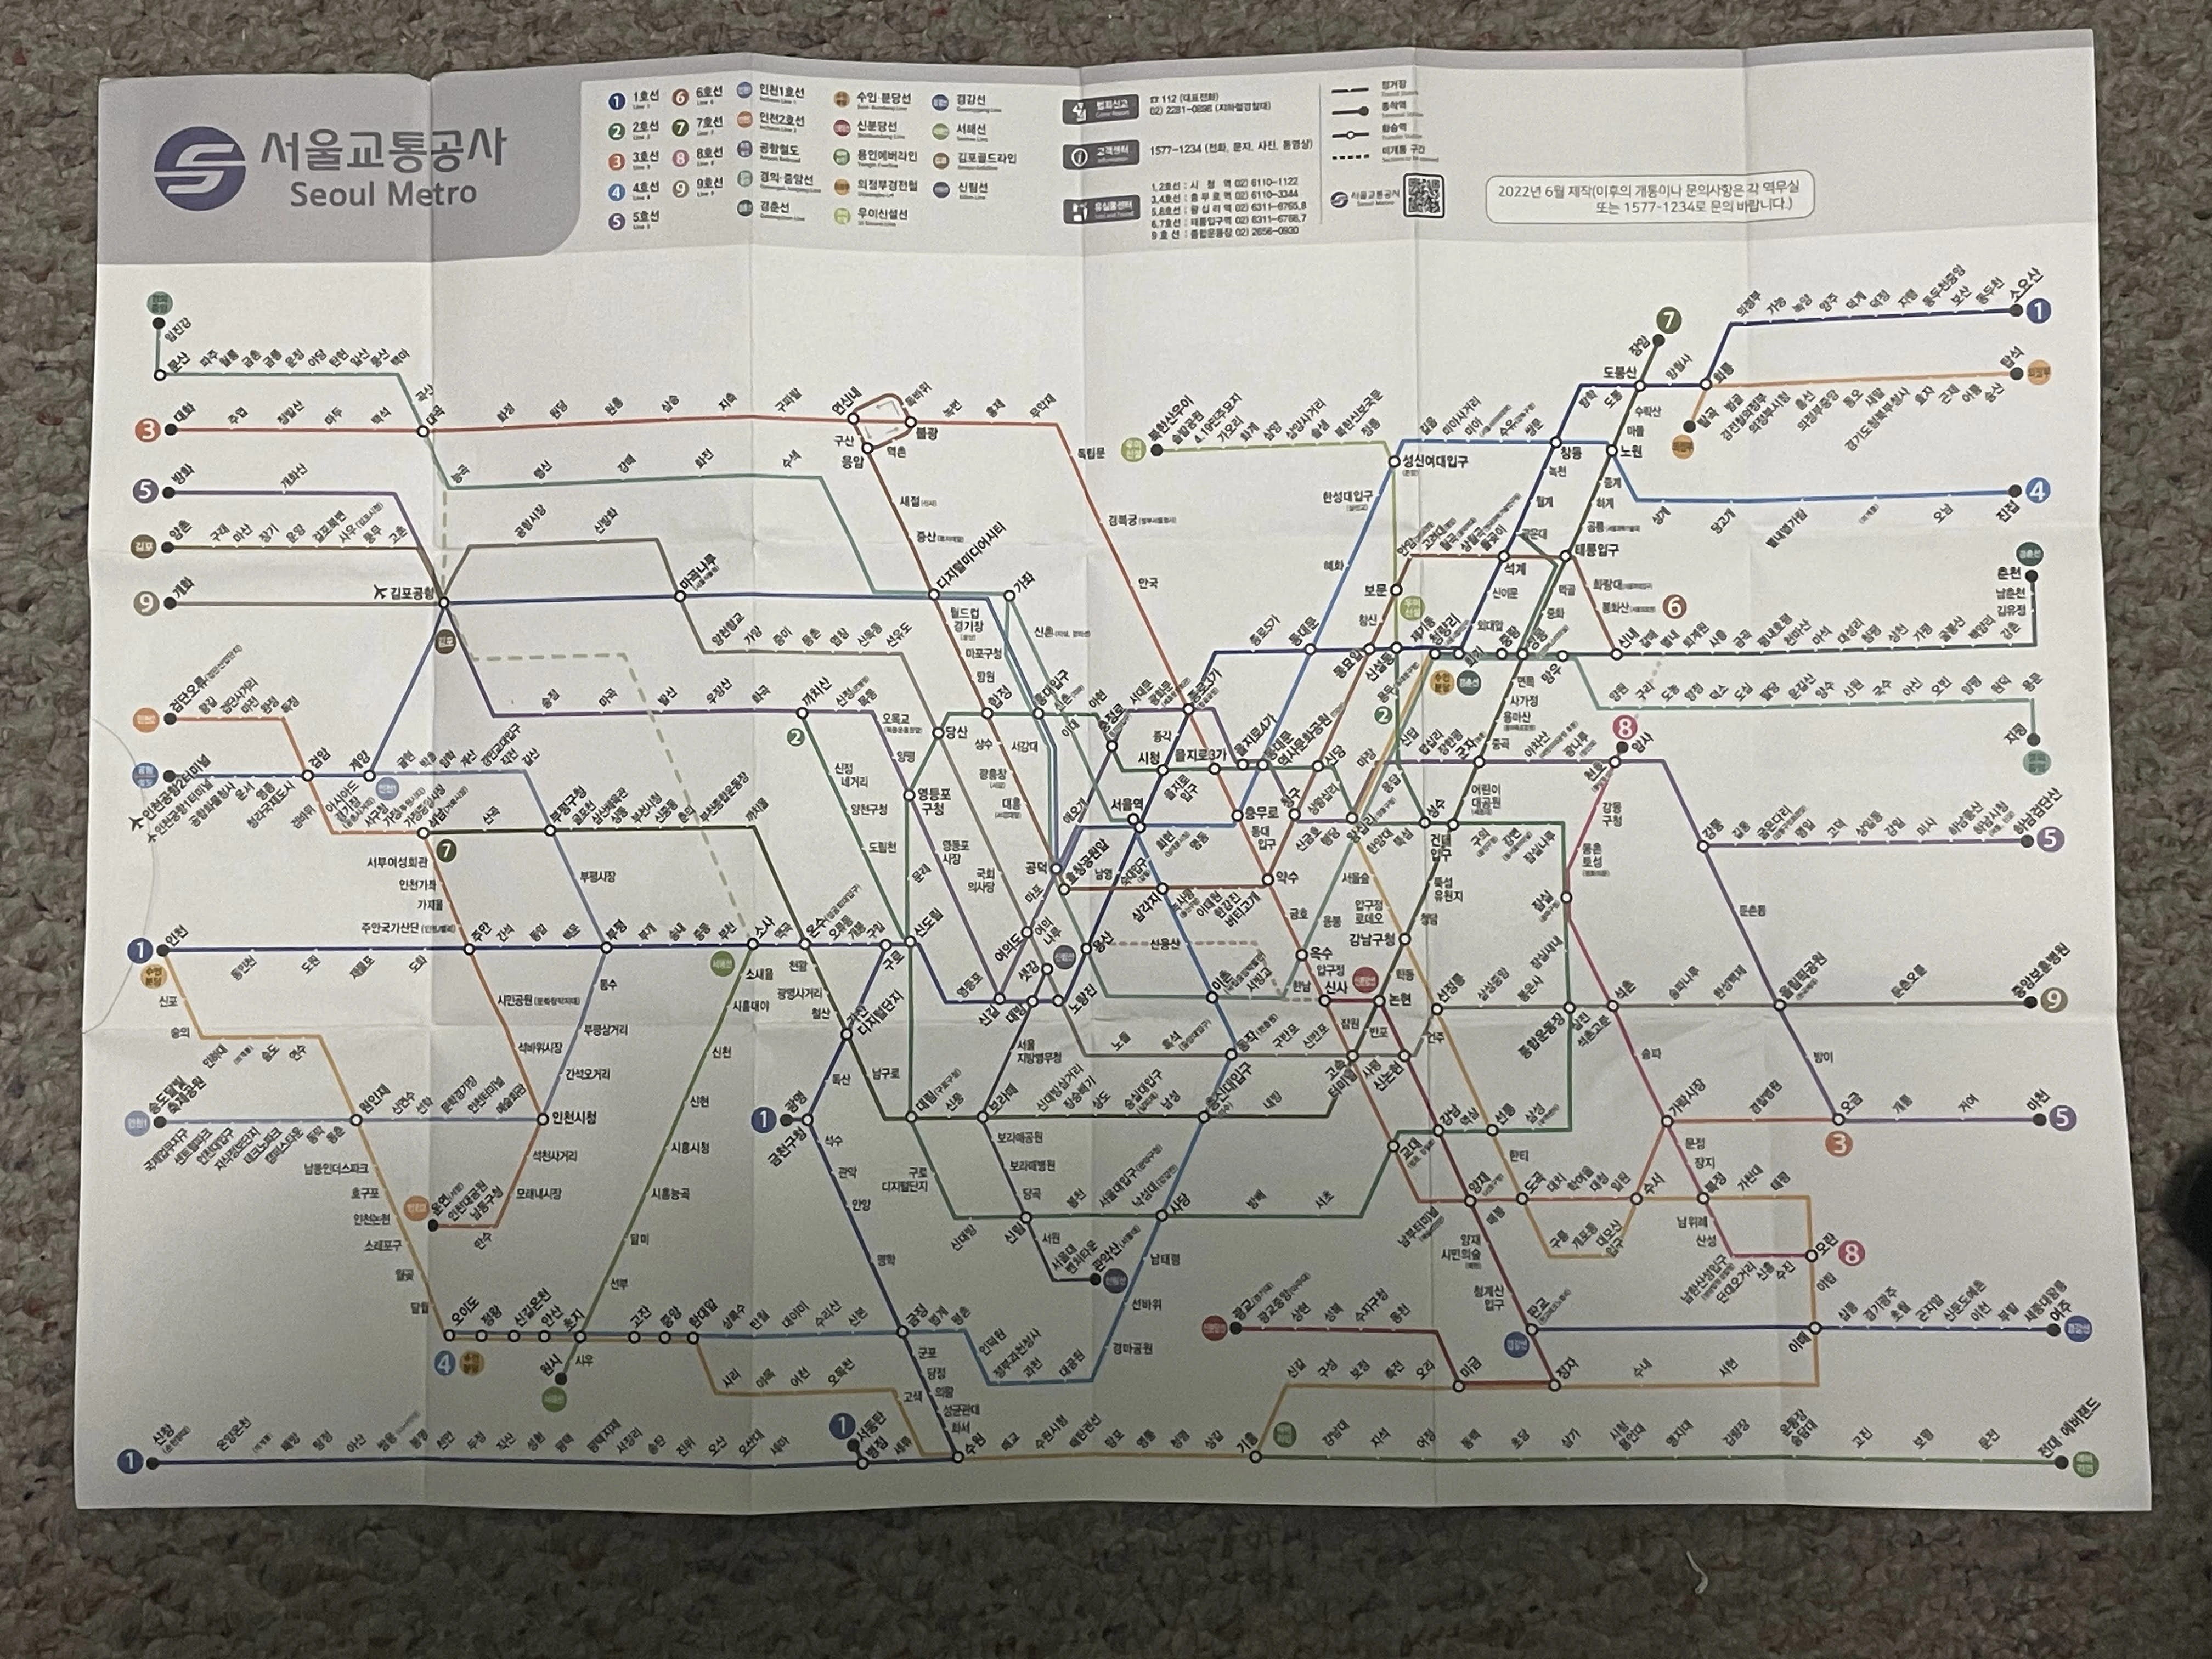 서울교통공사
Seoul Metro
1 1호선
Line 1
2 2호선
Line 2
3 3호선
Line 3
4 4호선
Line 4
5 5호선
Line 5
6 6호선
Line 6
7 7호선
Line 7
8 8호선
Line 8
9 9호선
Line 9
인천1호선
인천2호선
공항철도
경의·중앙선
경춘선
수인·분당선
신분당선
용인에버라인
의정부경전철
우이신설선
경강선
서해선
김포골드라인
신림선
범죄신고
☎ 112 (대표전화)
02) 2281-0898 (지하철경찰대)
고객센터
1577-1234 (전화, 문자, 사진, 동영상)
유실물센터
1,2호선 : 시 청 역 02) 6110-1122
3,4호선 : 충 무 로 역 02) 6110-3344
5,8호선 : 왕 십 리 역 02) 6311-6765,8
6,7호선 : 태릉입구역 02) 6311-6766,7
9 호 선 : 종합운동장 02) 2656-0930
정거장
종착역
환승역
미개통 구간
서울교통공사
Seoul Metro
2022년 6월 제작(이후의 개통이나 문의사항은 각 역무실
또는 1577-1234로 문의 바랍니다.)
임진강
문산 파주 월롱 금촌 금릉 운정 야당 탄현 일산 풍산 백마 곡산
3 대화 주엽 정발산 마두 백석 대곡 화정 원당 원흥 삼송 지축 구파발 연신내 불광 녹번 홍제 무악재
독바위
구산
응암
역촌
독립문
경복궁
안국
능곡 행신 강매 화전 수색
5 방화 개화산
양촌 구래 마산 장기 운양 걸포북변 사우 풍무 고촌
9 개화 김포공항 공항시장 신방화 마곡나루
새절
증산
디지털미디어시티
가좌
월드컵
경기장
마포구청
망원
합정
홍대입구
양천향교 가양 증미 등촌 염창 신목동 선유도
송정 마곡 발산 우장산 화곡 까치산 신정 목동
오목교
양평
당산
영등포
구청
영등포
시장
국회
의사당
2
신정
네거리
양천구청
도림천
문래
신도림
북한산우이 솔밭공원 4.19민주묘지 가오리 화계 삼양 삼양사거리 솔샘 북한산보국문 정릉
성신여대입구
한성대입구
혜화
동대문
보문
길음 미아사거리 미아 쌍문 창동 노원
7 장암
도봉산
도봉
방학
망월사
회룡
수락산
마들
중계
하계
공릉
태릉입구
녹천
월계
석계
신이문
외대앞
의정부 가능 녹양 양주 덕계 덕정 지행 동두천중앙 보산 동두천 소요산 1
탑석
발곡 범골 경전철의정부 의정부시청 흥선 의정부중앙 동오 새말 경기도청북부청사 효자 곤제 어룡 송산
상계 당고개 별내별가람 오남 진접 4
화랑대
봉화산 6
신내 갈매 별내 퇴계원 사릉 금곡 평내호평 천마산 마석 대성리 청평 상천 가평 굴봉산 백양리 강촌
춘천
남춘천
김유정
양원 구리 도농 양정 덕소 도심 팔당 운길산 양수 신원 국수 아신 오빈 양평 원덕 용문
지평
8 암사
천호
강동
구청
몽촌
토성
잠실
강동 길동 굽은다리 명일 고덕 상일동 강일 미사 하남풍산 하남시청 하남검단산 5
둔촌동
올림픽공원
방이
오금
개롱 거여 마천 5
3
검단오류 왕길 검단사거리 마전 완정 독정
인천공항2터미널 인천공항1터미널 공항화물청사 운서 영종 청라국제도시 검암 계양
귤현 박촌 임학 계산 경인교대입구 작전 갈산 부평구청
7
산곡 굴포천 삼산체육관 상동 부천시청 신중동 춘의 부천종합운동장 까치울
서부여성회관
인천가좌
가재울
주안국가산단
부평시장
1 인천 동인천 도원 제물포 도화 주안 간석 동암 백운 부평 부개 송내 중동 부천 소사 역곡 온수 오류동 개봉 구일 구로
신포
숭의
인하대 송도 연수
시민공원
석바위시장
동수
부평삼거리
간석오거리
인천시청
석천사거리
모래내시장
송도달빛
축제공원
국제업무지구 센트럴파크 인천대입구 지식정보단지 테크노파크 캠퍼스타운 동막 동춘
원인재 신연수 선학 문학경기장 인천터미널 예술회관
남동인더스파크
호구포
인천논현
소래포구
월곶
달월
운연 인천대공원 남동구청 만수
소새울
시흥대야
신천
신현
시흥시청
시흥능곡
달미
선부
초지
시우
원시
천왕
광명사거리
철산
가산
디지털단지
독산
남구로
1 광명
금천구청
석수
관악
안양
명학
금정
군포
당정
의왕
성균관대
화서
수원
오이도 정왕 신길온천 안산 고잔 중앙 한대앞 상록수 반월 대야미 수리산 산본
4
범계 평촌 인덕원 정부과천청사 과천 대공원
경마공원
선바위
남태령
사당
사리 야목 어천 오목천
고색
1 신창 온양온천 배방 탕정 아산 쌍용 봉명 천안 두정 직산 성환 평택 평택지제 서정리 송탄 진위 오산 오산대 세마 병점 세류
1 서동탄
매교 수원시청 매탄권선 망포 영통 청명 상갈 기흥
강남대 지석 어정 동백 초당 삼가 시청·용인대 명지대 김량장 운동장·송담대 고진 보평 둔전 전대·에버랜드
신갈 구성 보정 죽전 오리 미금 정자 수내 서현 이매
광교 광교중앙 상현 성복 수지구청 동천
판교
삼동 경기광주 초월 곤지암 신둔도예촌 이천 부발 세종대왕릉 여주
야탑
모란 8
수진 신흥 단대오거리 남한산성입구
산성
남위례
복정 가천대 태평
장지
문정
가락시장 경찰병원
송파
석촌
석촌고분
송파나루 한성백제 둔촌오륜 중앙보훈병원 9
종합운동장
삼성
선릉
역삼
강남
교대
서초
방배
낙성대
서울대입구
봉천
신림
신대방
구로
디지털단지
대림
신풍
보라매
신대방삼거리 장승배기 상도 숭실대입구 남성
내방
보라매공원
보라매병원
당곡
서원
서울대
벤처타운
관악산
서울
지방병무청
대방
신길
영등포
여의도
샛강
노량진
노들 흑석 동작 구반포 신반포
고속
터미널
사평
신논현
언주
선정릉
삼성중앙
봉은사
강남구청
학동
논현
반포
신사
잠원
압구정
옥수
금호
약수
동대
입구
충무로
을지로3가
종로3가
을지로4가
동대문
역사문화공원
신당
상왕십리
왕십리
한양대
뚝섬
성수
건대
입구
구의
강변
잠실나루
어린이
대공원
군자
중곡
용마산
사가정
면목
뚝섬
유원지
청담
서울숲
압구정
로데오
응봉
한남
서빙고
이촌
용산
신용산
삼각지
이태원
한강진
버티고개
남영
서울역
시청
종각
회현
명동
공덕
효창공원앞
마포
애오개
충정로
서대문
광화문
아현
이대
신촌
서강대
광흥창
대흥
상수
종로5가
동묘앞
신설동
제기동
청량리
회기
중랑
망우
창신
신금호
행당
마장
답십리
장한평
아차산
광나루
신답
용답
도곡
대치
학여울
대청
일원
수서
한티
구룡
개포동
대모산
입구
매봉
양재
남부터미널
양재
시민의숲
청계산
입구